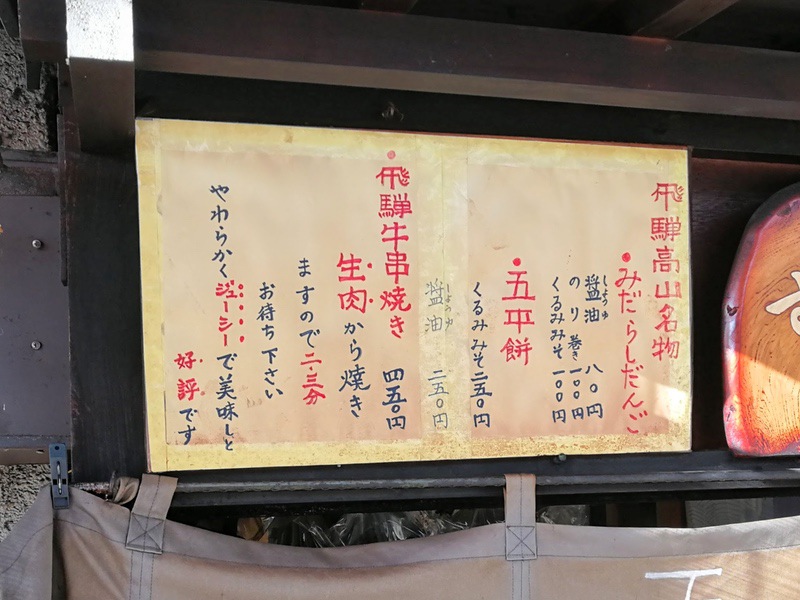 飛騨高山名物
みだらしだんご
醤油 八〇円
しょうゆ
のり巻き 一〇〇円
くるみみそ 一〇〇円
五平餅
くるみみそ 二五〇円
醤油 二五〇円
しょうゆ
飛騨牛串焼き 四五〇円
生肉から焼き
ますので二、三分
お待ち下さい
やわらかくジューシーで美味しと
好評です